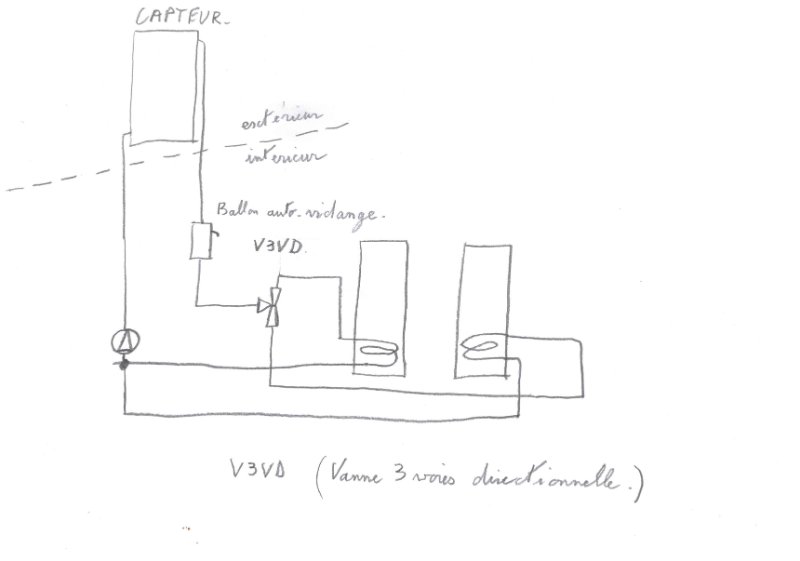 CAPTEUR.
extérieur
intérieur
Ballon auto-vidange.
V3VD.
V3VD (Vanne 3 voies directionnelle.)